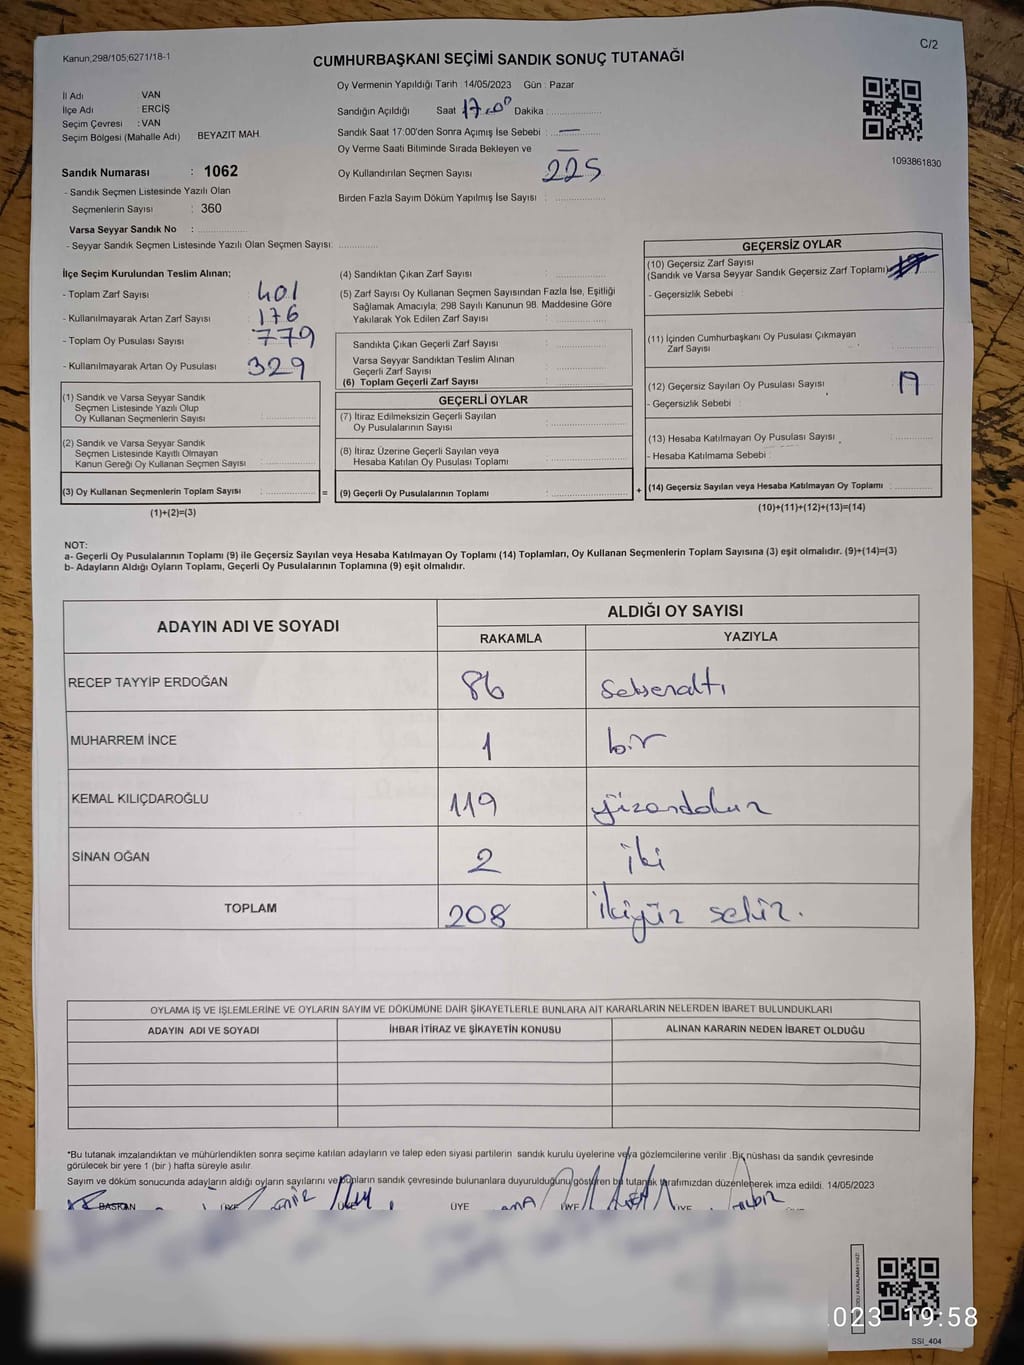 Kanun,298/105;6271/18-1
C/2
CUMHURBAŞKANI SEÇİMİ SANDIK SONUÇ TUTANAĞI
İl Adı VAN
İlçe Adı : ERCİŞ
Seçim Çevresi : VAN
Seçim Bölgesi (Mahalle Adı) BEYAZIT MAH.
Oy Vermenin Yapıldığı Tarih : 14/05/2023 Gün : Pazar
Sandığın Açıldığı Saat 17.00 Dakika :
Sandık Saat 17:00'den Sonra Açımış İse Sebebi : —
Oy Verme Saati Bitiminde Sırada Bekleyen ve —
Oy Kullandırılan Seçmen Sayısı 225
Birden Fazla Sayım Döküm Yapılmış İse Sayısı :
1093861830
Sandık Numarası : 1062
- Sandık Seçmen Listesinde Yazılı Olan
Seçmenlerin Sayısı : 360
Varsa Seyyar Sandık No :
- Seyyar Sandık Seçmen Listesinde Yazılı Olan Seçmen Sayısı:
İlçe Seçim Kurulundan Teslim Alınan;
- Toplam Zarf Sayısı : 401
- Kullanılmayarak Artan Zarf Sayısı : 176
- Toplam Oy Pusulası Sayısı : 779
- Kullanılmayarak Artan Oy Pusulası : 329
(1) Sandık ve Varsa Seyyar Sandık
Seçmen Listesinde Yazılı Olup
Oy Kullanan Seçmenlerin Sayısı :
(2) Sandık ve Varsa Seyyar Sandık
Seçmen Listesinde Kayıtlı Olmayan
Kanun Gereği Oy Kullanan Seçmen Sayısı :
(3) Oy Kullanan Seçmenlerin Toplam Sayısı : =
(1)+(2)=(3)
(4) Sandıktan Çıkan Zarf Sayısı :
(5) Zarf Sayısı Oy Kullanan Seçmen Sayısından Fazla İse, Eşitliği
Sağlamak Amacıyla, 298 Sayılı Kanunun 98. Maddesine Göre
Yakılarak Yok Edilen Zarf Sayısı :
Sandıkta Çıkan Geçerli Zarf Sayısı :
Varsa Seyyar Sandıktan Teslim Alınan
Geçerli Zarf Sayısı :
(6) Toplam Geçerli Zarf Sayısı :
GEÇERLİ OYLAR
(7) İtiraz Edilmeksizin Geçerli Sayılan
Oy Pusulalarının Sayısı :
(8) İtiraz Üzerine Geçerli Sayılan veya
Hesaba Katılan Oy Pusulası Toplamı :
(9) Geçerli Oy Pusulalarının Toplamı : +
GEÇERSİZ OYLAR
(10) Geçersiz Zarf Sayısı
(Sandık ve Varsa Seyyar Sandık Geçersiz Zarf Toplamı)
- Geçersizlik Sebebi :
(11) İçinden Cumhurbaşkanı Oy Pusulası Çıkmayan
Zarf Sayısı
(12) Geçersiz Sayılan Oy Pusulası Sayısı : 17
- Geçersizlik Sebebi :
(13) Hesaba Katılmayan Oy Pusulası Sayısı
- Hesaba Katılmama Sebebi :
(14) Geçersiz Sayılan veya Hesaba Katılmayan Oy Toplamı :
(10)+(11)+(12)+(13)=(14)
NOT:
a- Geçerli Oy Pusulalarının Toplamı (9) ile Geçersiz Sayılan veya Hesaba Katılmayan Oy Toplamı (14) Toplamları, Oy Kullanan Seçmenlerin Toplam Sayısına (3) eşit olmalıdır. (9)+(14)=(3)
b- Adayların Aldığı Oyların Toplamı, Geçerli Oy Pusulalarının Toplamına (9) eşit olmalıdır.
ADAYIN ADI VE SOYADI ALDIĞI OY SAYISI
RAKAMLA YAZIYLA
RECEP TAYYİP ERDOĞAN 86 Seksenaltı
MUHARREM İNCE 1 bir
KEMAL KILIÇDAROĞLU 119 yüzondokuz
SİNAN OĞAN 2 iki
TOPLAM 208 ikiyüz sekiz.
OYLAMA İŞ VE İŞLEMLERİNE VE OYLARIN SAYIM VE DÖKÜMÜNE DAİR ŞİKAYETLERLE BUNLARA AİT KARARLARIN NELERDEN İBARET BULUNDUKLARI
ADAYIN ADI VE SOYADI İHBAR İTİRAZ VE ŞİKAYETİN KONUSU ALINAN KARARIN NEDEN İBARET OLDUĞU
*Bu tutanak imzalandıktan ve mühürlendikten sonra seçime katılan adayların ve talep eden siyasi partilerin sandık kurulu üyelerine veya gözlemcilerine verilir .Bir nüshası da sandık çevresinde
görülecek bir yere 1 (bir ) hafta süreyle asılır.
Sayım ve döküm sonucunda adayların aldığı oyların sayılarını ve bunların sandık çevresinde bulunanlara duyurulduğunu gösteren bu tutanak tarafımızdan düzenlenerek imza edildi. 14/05/2023
BAŞKAN ÜYE ÜYE ÜYE ÜYE ÜYE
023 19:58
SSI_404